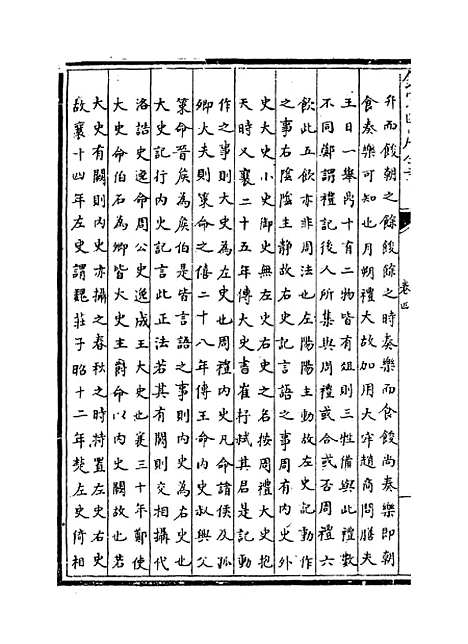 升而餕朝之餘餕餘之時奏樂而食餕尚奏樂即朝
食奏樂可知也月朔禮大故加用大牢趙商問膳夫
王日一舉鼎十有二物皆有俎則三牲備與此禮數
不同鄭謂禮記後人所集與周禮或合或否周禮六
飲此五飲亦非周法也左陽陽主動故左史記動作
之事右陰陰主静故右史記言語之事周有内史外
史大史小史御史無左史右史之名按周禮大史抱
天時又襄二十五年傳大史書崔杼弑其君是記動
作之事則大史為左史也周禮内史凡命諸侯及孤
卿大夫則策命之僖二十八年傳王命内史叔興父
策命晉矦為矦伯是皆言語之事則内史為右史也
大史記行内史記言此正法若其有闕則交相攝代
洛誥史逸命周公史逸成王大史也襄三十年鄭使
大史命伯石為卿皆大史主爵命以内史闕故也若
大史有闕則内史亦攝之春秋之時特置左史右史
故襄十四年左史謂魏莊子昭十二年楚左史倚相
卷四